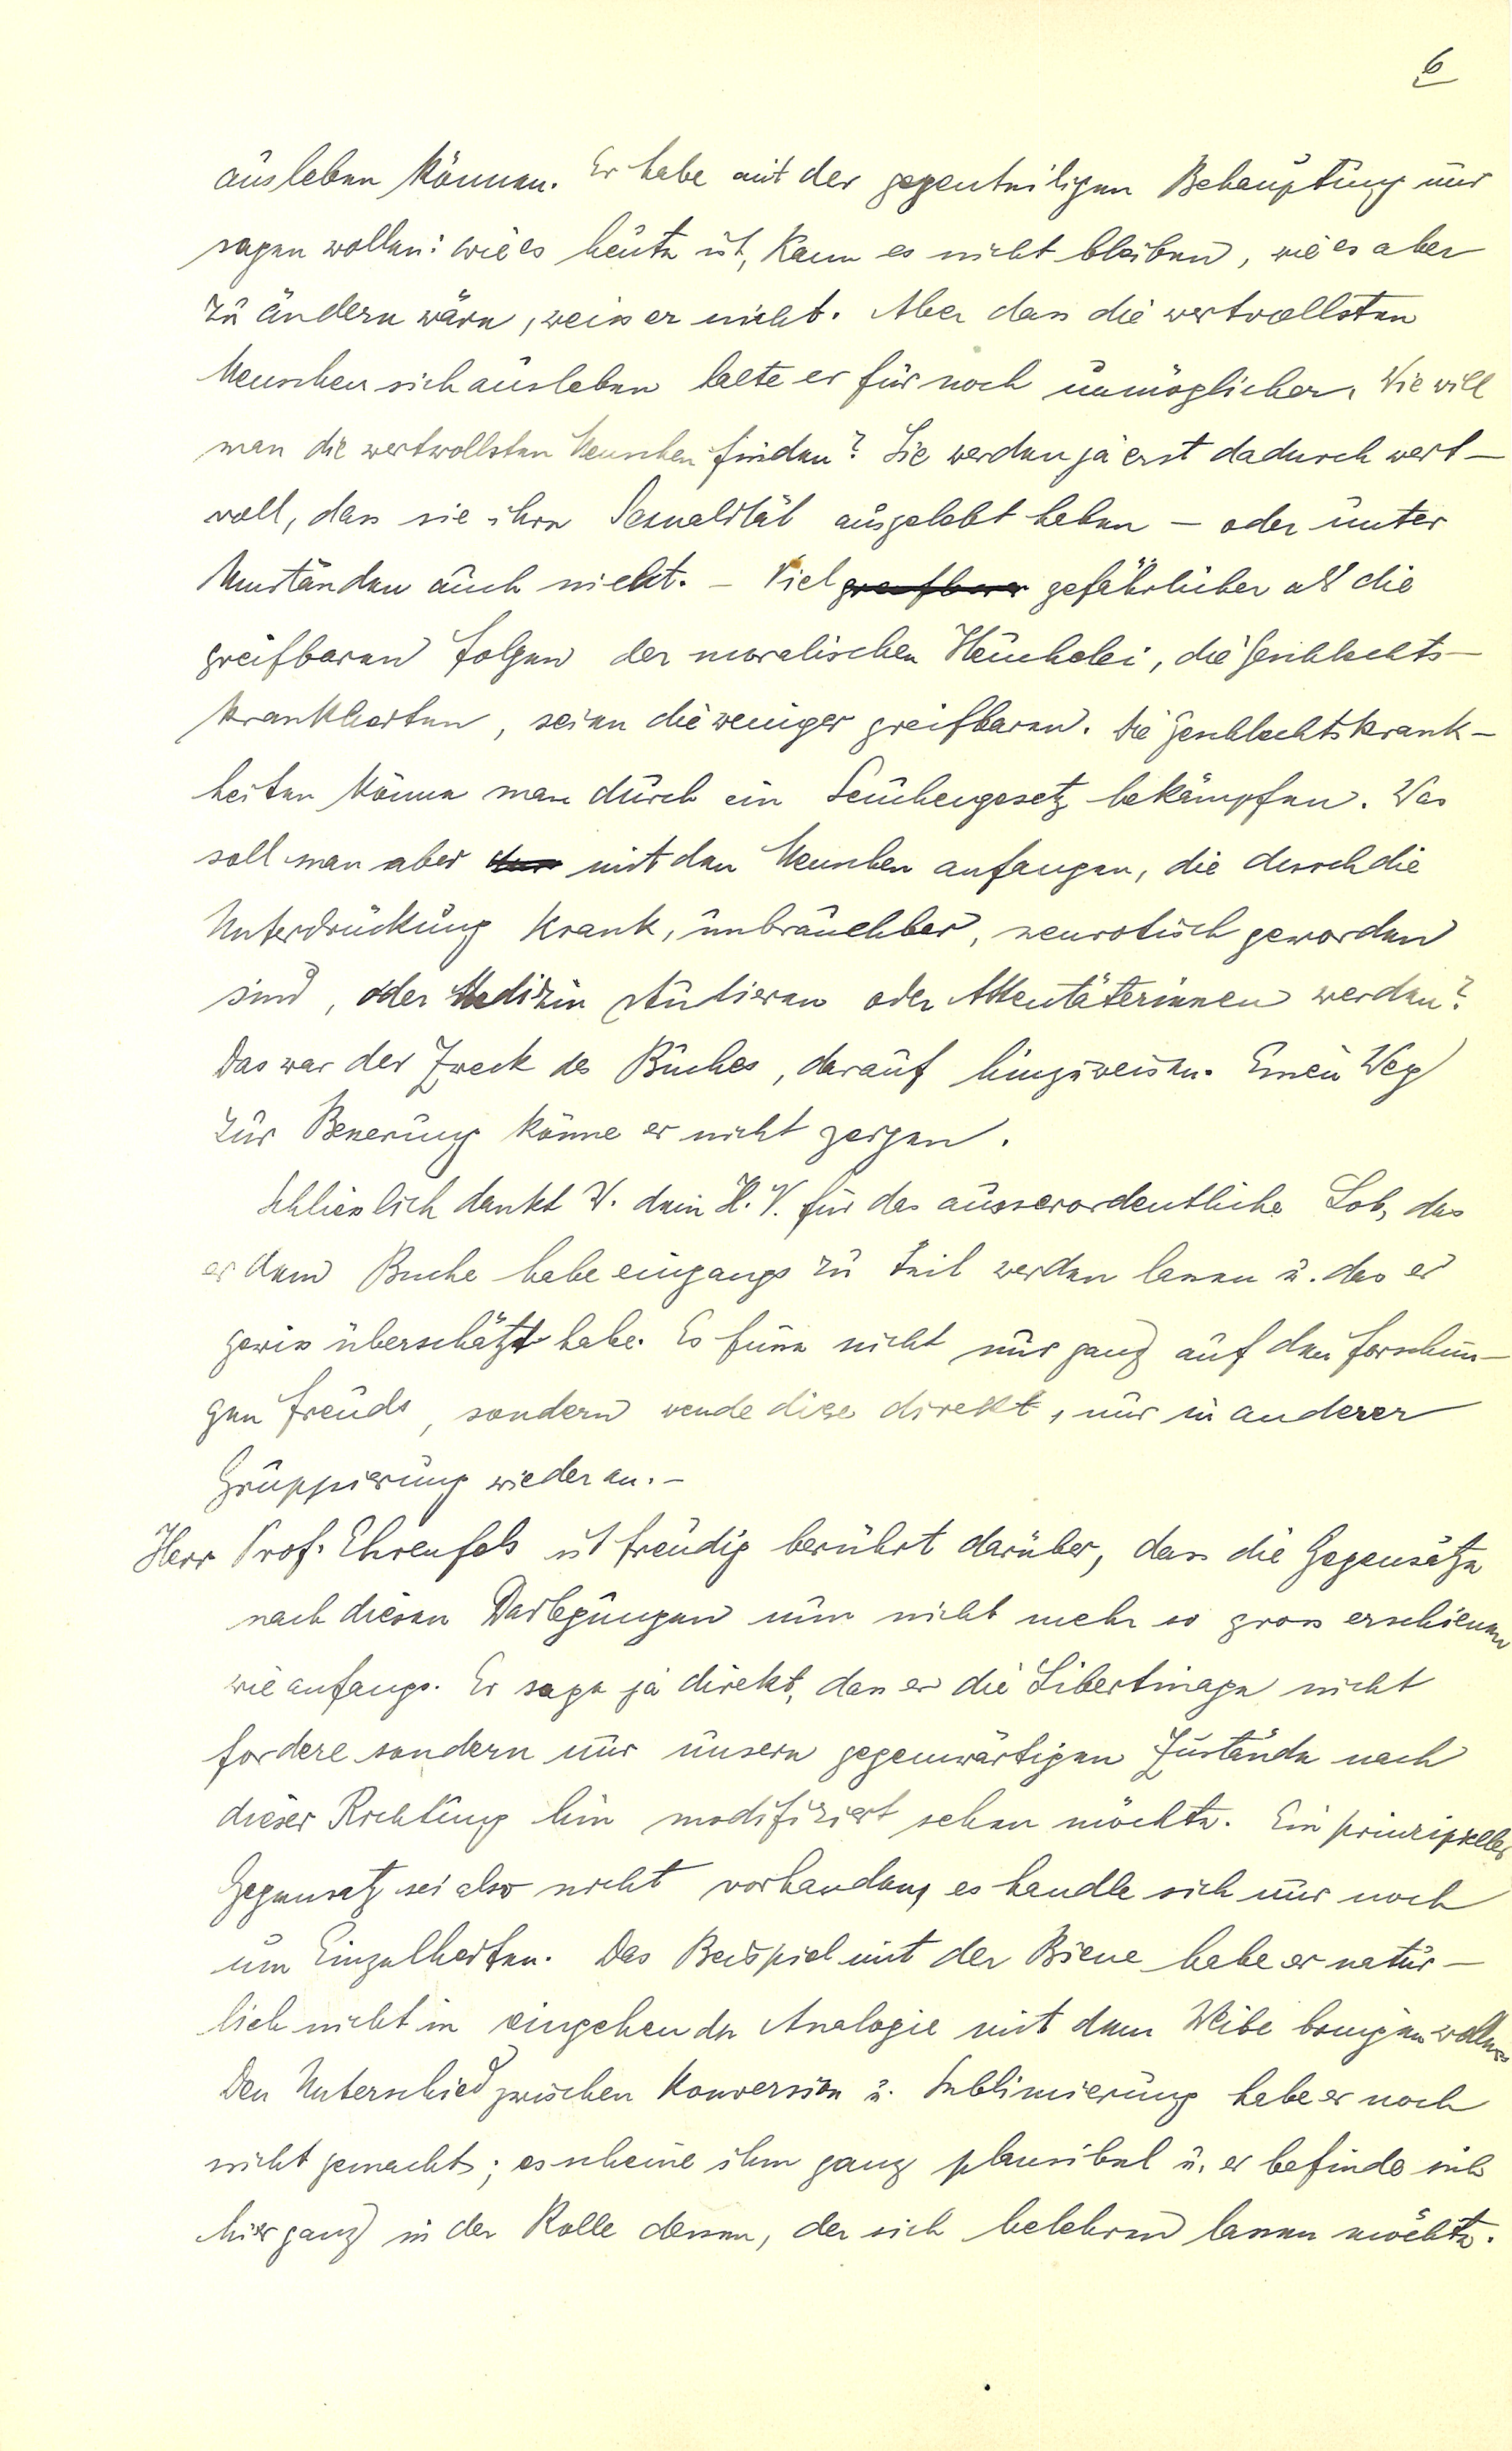 6
ausleben können. Er habe mit der gegenteiligen Behauptung nur
sagen wollen: wie es heute ist, kann es nicht bleiben, wie es aber
zu ändern wäre, weiss er nicht. Aber dass die wertvollsten
Menschen sich ausleben halte er für noch unmöglicher. Wie will
man die wertvollsten Menschen finden? Sie werden ja erst dadurch wert-
voll, dass sie ihre Sexualität ausgelebt haben – oder unter
Umständen auch nicht. – Viel greifbarer gefährlicher als die
greifbaren Folgen der moralischen Heuchelei, die Geschlechts-
krankheiten, seien die weniger greifbaren. Die Geschlechtskrank-
heiten könne man durch ein Seuchengesetz bekämpfen. Was
soll man aber mit den Menschen anfangen, die durch die
Unterdrückung krank, unbrauchbar, neurotisch geworden
sind, oder Medizin studieren oder Attentäterinnen werden?
Das war der Zweck des Buches, darauf hinzuweisen. Einen Weg
zur Besserung könne er nicht zeigen.
Schliesslich dankt W. dem H. V. für das ausserordentliche Lob, das
er dem Buche habe eingangs zu Teil werden lassen u. das er
gewiss überschätzt habe. Es fusse nicht nur ganz auf den Forschun-
gen Freuds, sondern wende diese direkt, nur in anderer
Gruppierung wieder an. –
Herr Prof. Ehrenfels ist freudig berührt darüber, dass die Gegensätze
nach diesen Darlegungen nun nicht mehr so gross erschienen
wie anfangs. Er sage ja direkt, dass er die Libertinage nicht
fordere sondern nur unsere gegenwärtigen Zustände nach
dieser Richtung hin modifiziert sehen möchte. Ein prinzipieller
Gegensatz sei also nicht vorhanden, es handle sich nur noch
um Einzelheiten. Das Beispiel mit der Biene habe er natür-
lich nicht in eingehende Analogie mit dem Weibe bringen wollen.
Den Unterschied zwischen Konversion u. Sublimierung habe er noch
nicht gemacht; es scheine ihm ganz plausibel u. er befinde sich
hier ganz in der Rolle dessen, der sich belehren lassen möchte.